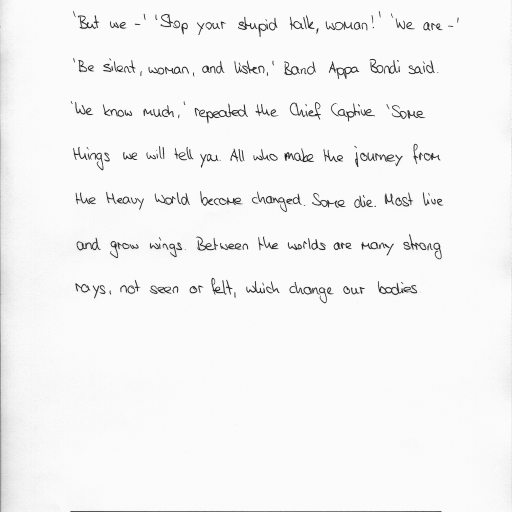 'But we -' 'Stop your stupid talk, woman!' 'We are -'
'Be silent, woman, and listen,' Band Appa Bondi said.
'We know much,' repeated the Chief Captive 'Some
things we will tell you. All who make the journey from
the Heavy World become changed. Some die. Most live
and grow wings. Between the worlds are many strong
rays, not seen or felt, which change our bodies